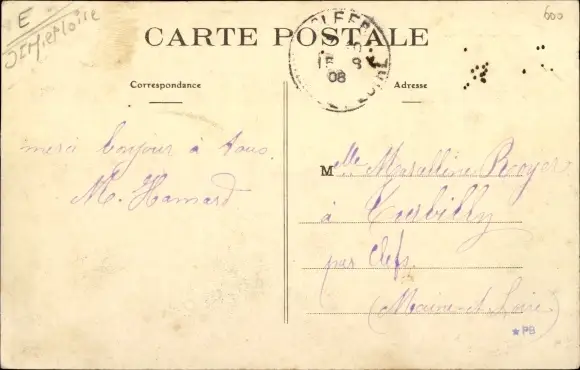 E
CARTE POSTALE
600
CLEFS
15 8
08
LOIRE
Correspondance
Adresse
merci bonjour à tous.
M. Hamard
Mlle Marselline Royer
à
par Clefs
(Maine-et-Loire)
*PB